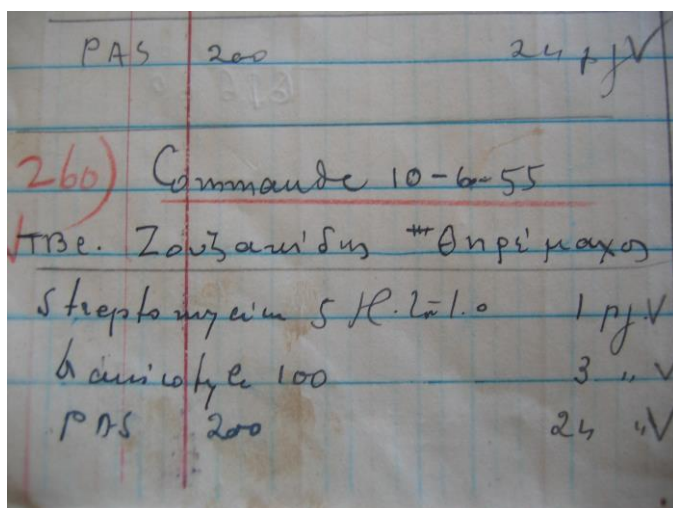 PAS 200 24 pjV
260) Commande 10-6-55
TBC. Ζουζακίδης Θηρέμαχος
Streptomycin 5 1.0 1 pj.V
100 3 " V
PAS 200 24 "V